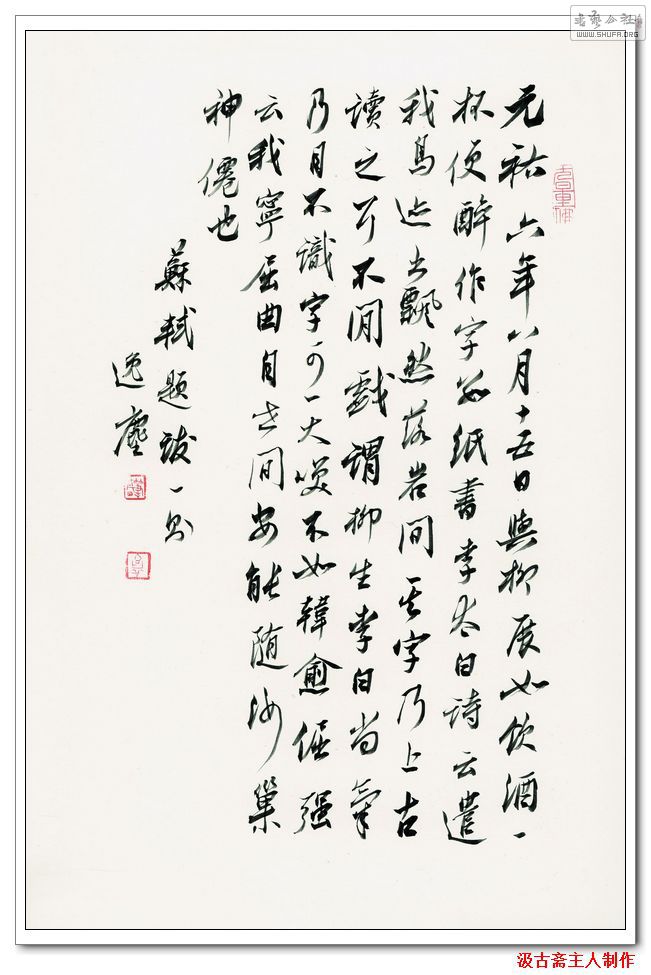 书艺公社
WWW.SHUFA.ORG
元祐六年八月十五日與柳展如飲酒一
杯便醉作字數紙書李太白詩云遣
我鳥迹書飄然落岩間其字乃上古
讀之了不閒戲謂柳生李白尚氣
乃自不識字可一大笑不如韓愈倔强
云我寧屈曲自世間安能随汝巢
神僊也
蘇軾題跋一則
逸塵
汲古斋主人制作